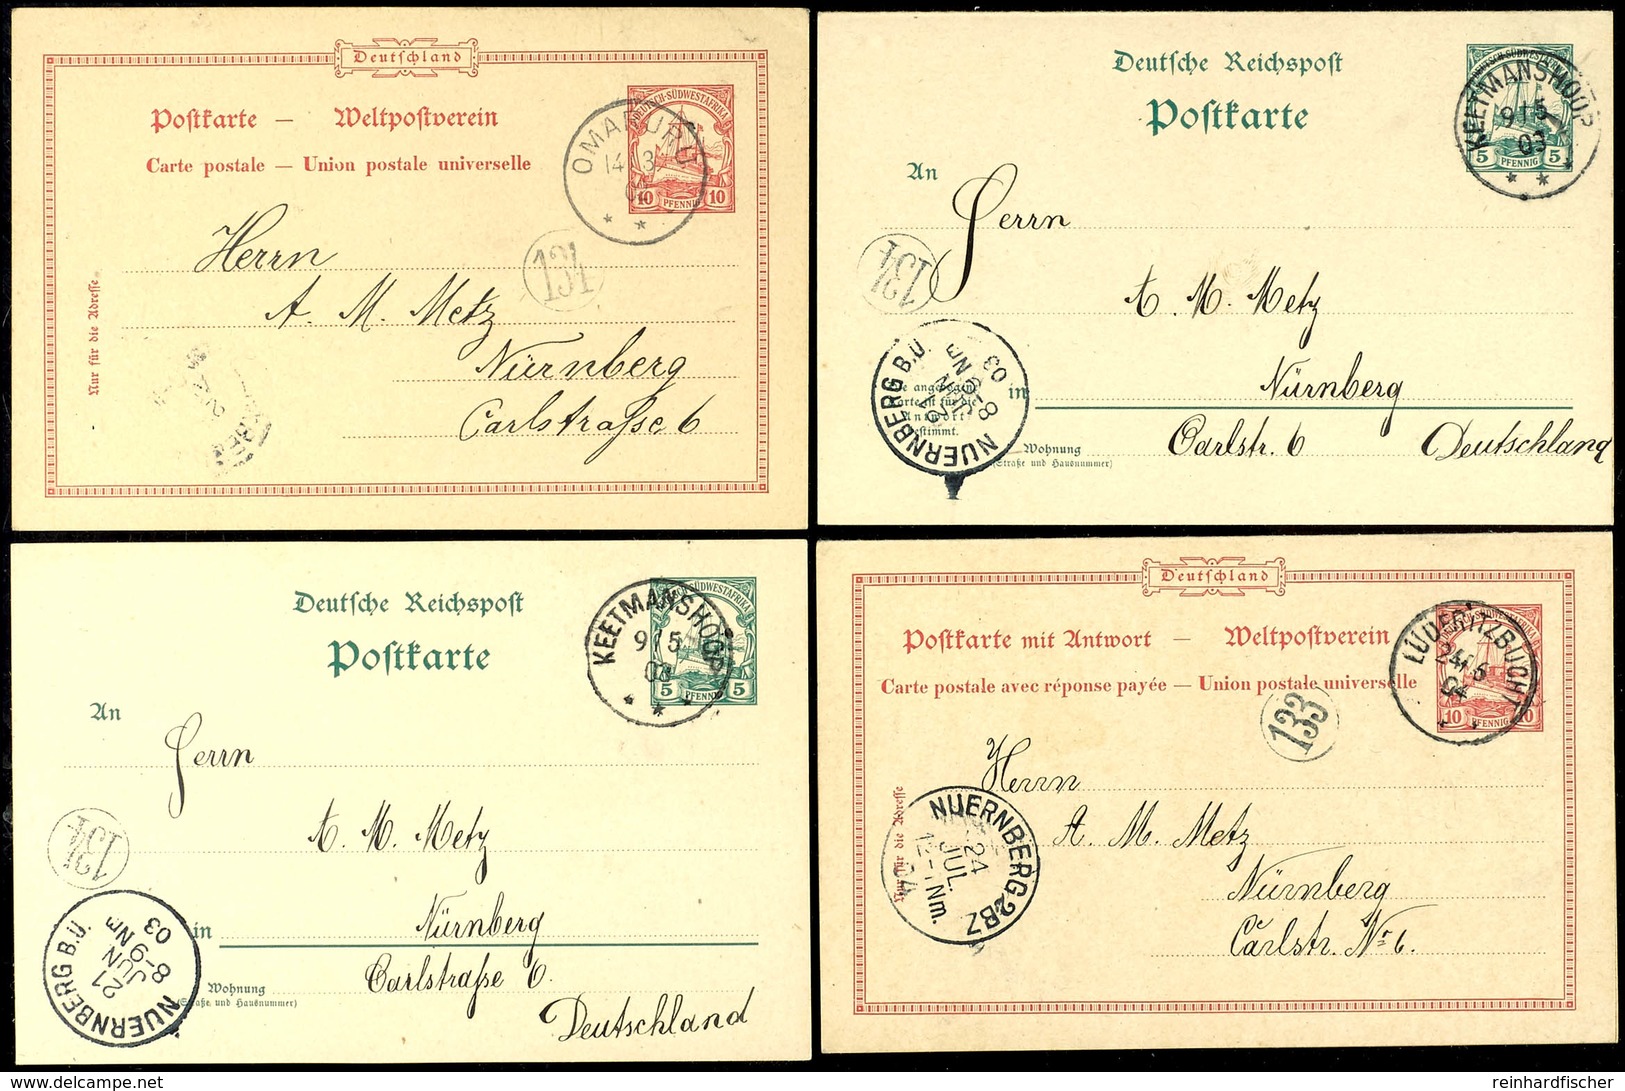 Deutschland
Postkarte — Weltpostverein
Carte postale — Union postale universelle
DEUTSCH-SÜDWESTAFRIKA
10 PFENNIG 10
OMARURU
14 3
* *
131
Herrn
A. M. Metz
Nürnberg
Carlstraße 6
Nur für die Adresse
Deutsche Reichspost
Postkarte
5 PFENNIG 5
KEETMANSHOOP
9/5
03
* *
An
Herrn
134
A. M. Metz
in Nürnberg
NUERNBERG B.U.
21
JUN
8-9 Nm
03
Die angebogene
Karte ist für die
Antwort
bestimmt.
Wohnung
(Straße und Hausnummer)
Carlstr. 6 Deutschland
Deutsche Reichspost
Postkarte
DEUTSCH-SÜDWESTAFRIKA
5 PFENNIG 5
KEETMANSHOOP
9/5
03
An
Herrn
134
A. M. Metz
in Nürnberg
NUERNBERG B.U.
21
JUN
8-9 Nm
03
Wohnung
(Straße und Hausnummer)
Carlstrasse 6
Deutschland
Deutschland
Postkarte mit Antwort — Weltpostverein
Carte postale avec réponse payée — Union postale universelle
10 PFENNIG 10
LÜDERITZBUCHT
24/6
04
133
Herrn
A. M. Metz
Nürnberg
Carlstr. No 6.
Nur für die Adresse
NUERNBERG 2 BZ
24
JUL.
12-1 Nm.
04
reinhardfischer